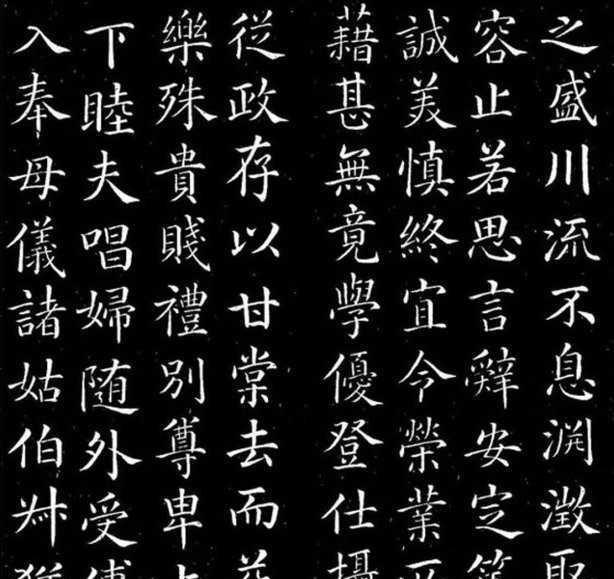 之盛川流不息渊澂取
容止若思言辭安定
誠美慎終宜令榮業
藉甚無竟學優登仕攝
從政存以甘棠去而
樂殊貴賤禮別尊卑上
下睦夫唱婦随外受傅
入奉母儀諸姑伯叔猶